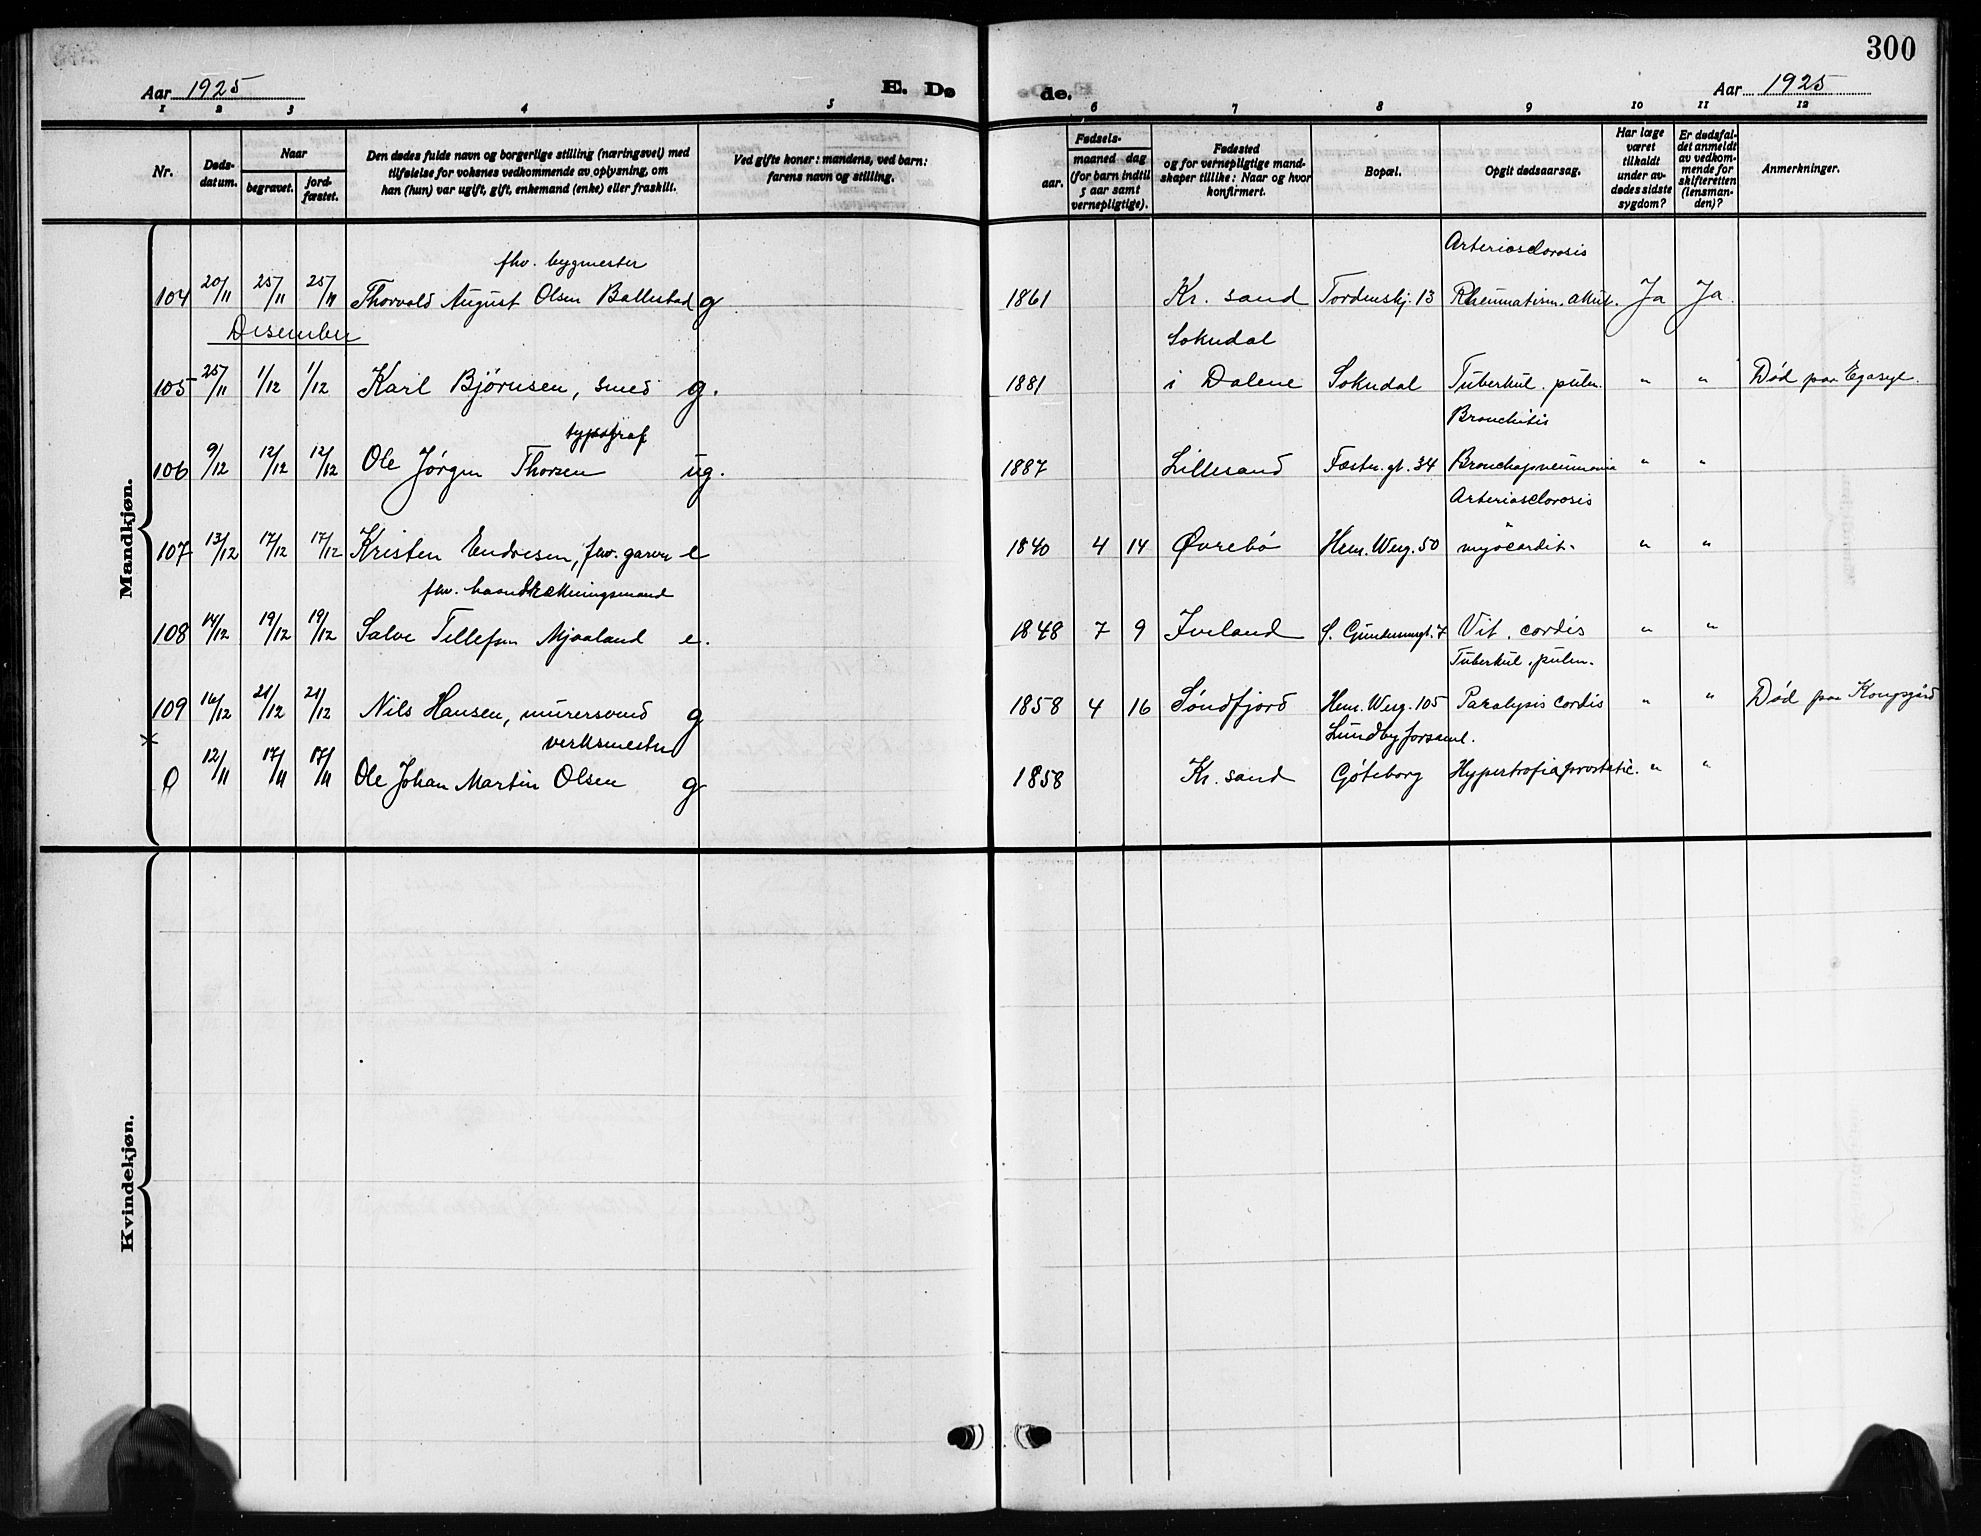 300
Aar 1925 E. Døde. Aar 1925
1 2 3 4 5 6 7 8 9 10 11 12
Nr.
Døds-datum.
Naar
begravet.
jord-fæstet.
Den dødes fulde navn og borgerlige stilling (næringsvei) med
tilføielse for voksnes vedkommende av oplysning, om
han (hun) var ugift, gift, enkemand (enke) eller fraskilt.
Ved gifte koner: mandens, ved barn:
farens navn og stilling.
Fødsels-
aar.
maaned dag
(for barn indtil
5 aar samt
vernepligtige).
Fødested
og for vernepligtige mand-
skaper tillike: Naar og hvor
konfirmert.
Bopæl.
Opgit dødsaarsag.
Har læge
været
tilkaldt
under av-
dødes sidste
sygdom?
Er dødsfal-
det anmeldt
av vedkom-
mende for
skifteretten
(lensman-
den)?
Anmerkninger.
Mandkjøn.
fhv. bygmester Arteriosclerosis
104 20/11 25/11 25/11 Thorvald August Olsen Ballestad g 1861 Kr. sand Tordenskj. 13 Rheumatism. akut. Ja Ja.
Desember Sokndal
105 25/11 1/12 1/12 Karl Bjørnsen, smed g. 1881 i Dalene Sokndal Tuberkul. pulm. " " Død paa Egasyl.
typograf Bronchitis
106 9/12 12/12 12/12 Ole Jørgen Thorsen ug. 1887 Lillesand Fæstn. gt. 34 Bronchopneumonia " "
Arteriosclerosis
107 13/12 17/12 17/12 Kristen Endresen, fhv. garver e 1840 4 14 Øvrebø Hen. Werg. 50 myocardit. " "
fhv. haandtækningsmand
108 14/12 19/12 19/12 Salve Tellefsen Mjaaland e. 1848 7 9 Iveland S. Gundersensgt. 7 Vit. cordis " "
Tuberkul. pulm.
109 16/12 21/12 21/12 Nils Hansen, murersvend g 1858 4 16 Søndfjord Hen. Werg. 105 Paralysis cordis " " Død paa Kongsgård
verksmester Lundby forsaml.
0 12/11 17/11 17/11 Ole Johan Martin Olsen g 1858 Kr. sand Göteborg Hypertrofia prostatic. " "
Kvindekjøn.